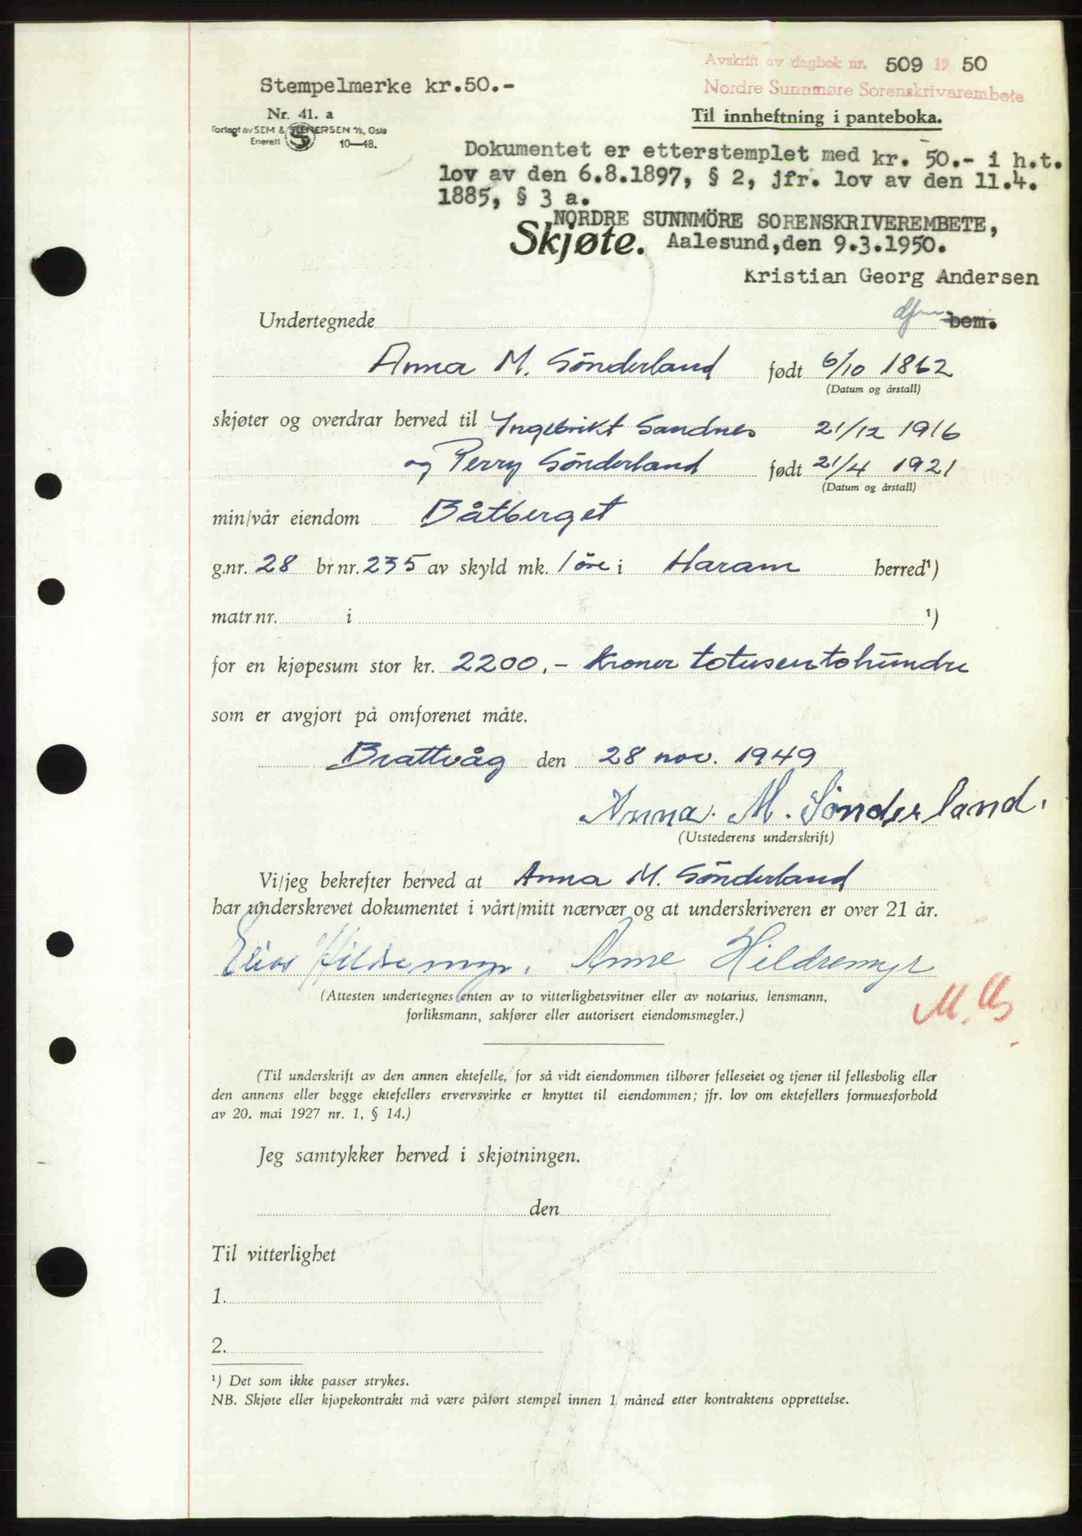 Avskrift av dagbok nr. 509 19 50
Nordre Sunnmøre Sorenskrivarembete
Stempelmerke kr.50.-
Til innheftning i panteboka.
Nr. 41. a
Forlagt av SEM & STENERSEN A/S, Oslo
Enerett 10—48.
Dokumentet er etterstemplet med kr. 50.- i h.t.
lov av den 6.8.1897, § 2, jfr. lov av den 11.4.
1885, § 3 a.
NORDRE SUNNMÖRE SORENSKRIVEREMBETE,
Skjøte. Aalesund,den 9.3.1950.
Kristian Georg Andersen
Undertegnede bem.
Anna M. Sönderland født 6/10 1862
(Datum og årstall)
skjøter og overdrar herved til Ingebrikt Sandnes 21/12 1916
og Perry Sönderland født 21/4 1921
(Datum og årstall)
min/vår eiendom Båtberget
g.nr. 28 br.nr. 235 av skyld mk. 1 øre i Haram herred¹)
matr.nr. i ¹)
for en kjøpesum stor kr. 2200,- Kroner totusentohundre
som er avgjort på omforenet måte.
Brattvåg den 28 nov. 1949
Anna. M. Sönderland.
(Utstederens underskrift)
Vi/jeg bekrefter herved at Anna M. Sönderland
har underskrevet dokumentet i vårt/mitt nærvær og at underskriveren er over 21 år.
Elias Hildremyr. Anne Hildremyr
(Attesten undertegnes enten av to vitterlighetsvitner eller av notarius, lensmann,
forliksmann, sakfører eller autorisert eiendomsmegler.)
(Til underskrift av den annen ektefelle, for så vidt eiendommen tilhører felleseiet og tjener til fellesbolig eller
den annens eller begge ektefellers ervervsvirke er knyttet til eiendommen; jfr. lov om ektefellers formuesforhold
av 20. mai 1927 nr. 1, § 14.)
Jeg samtykker herved i skjøtningen.
den
Til vitterlighet
1.
2.
¹) Det som ikke passer strykes.
NB. Skjøte eller kjøpekontrakt må være påført stempel innen 1 måned etter kontraktens opprettelse.